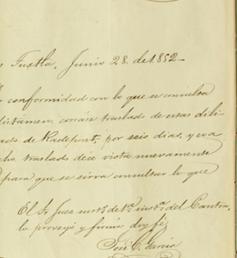 Tuxtla, Junio 28. de 1852-
conformidad con lo que se consulta
dictámen, córrase traslado de estas dili-
de Radepont, por seis dias, y eva
traslado dése vista nuevamente
para que se sirva consultar lo que
El Sr Juez de 1ª inst.ª del Canton,
lo proveyó y firmó doy fé.
José C. García